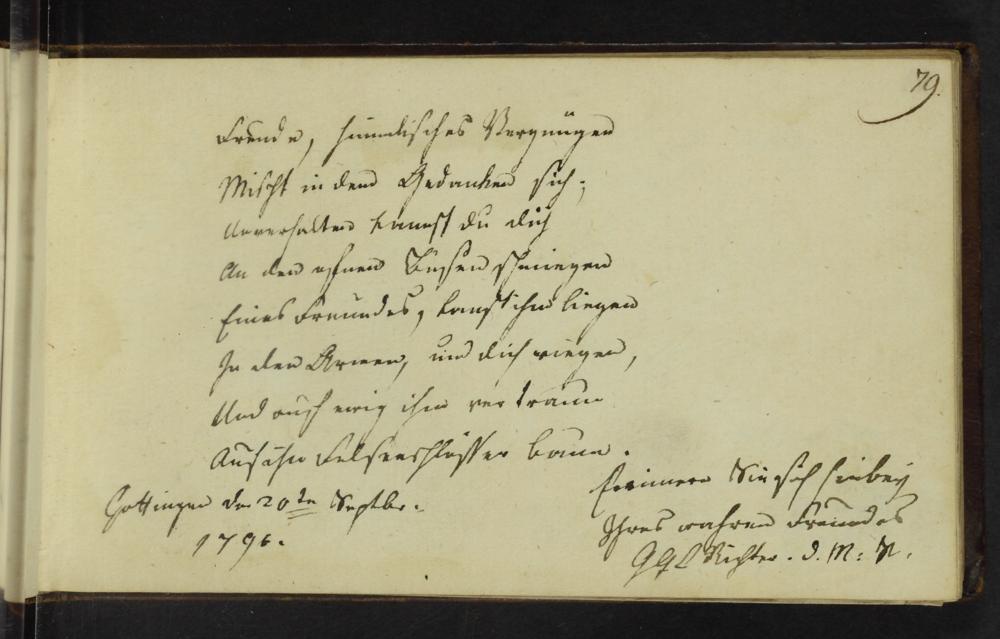 79.
Freude, himmlisches Vergnügen
Mischt in dem Gedanken sich;
Unverhalten kannst du dich
An den ofnen Busen schmiegen
Eines Freundes, kanst ihm liegen
In den Armen, und dich wiegen,
Und auch ewig ihm vertraun
Auf ihn Felsenschlösser baun.
Göttingen den 20ten Septbr.
1796.
Erinnern Sie sich hiebey
Ihres wahren Freundes
Richter. d. M: B.